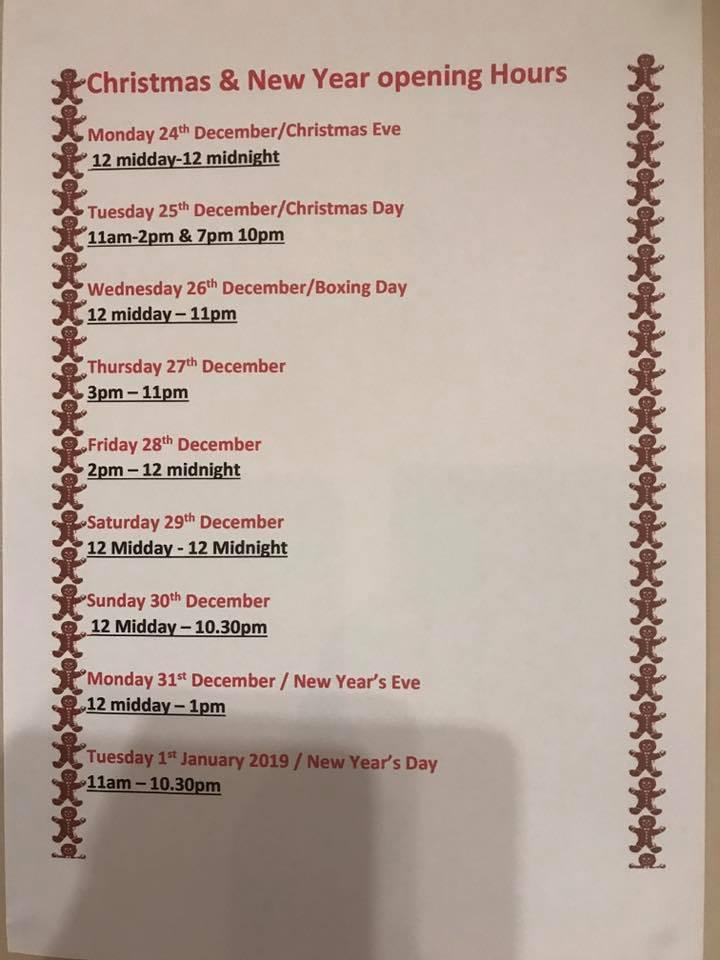 Christmas & New Year opening Hours
Monday 24th December/Christmas Eve
12 midday-12 midnight
Tuesday 25th December/Christmas Day
11am-2pm & 7pm 10pm
Wednesday 26th December/Boxing Day
12 midday – 11pm
Thursday 27th December
3pm – 11pm
Friday 28th December
2pm – 12 midnight
Saturday 29th December
12 Midday - 12 Midnight
Sunday 30th December
12 Midday – 10.30pm
Monday 31st December / New Year’s Eve
12 midday – 1pm
Tuesday 1st January 2019 / New Year’s Day
11am – 10.30pm